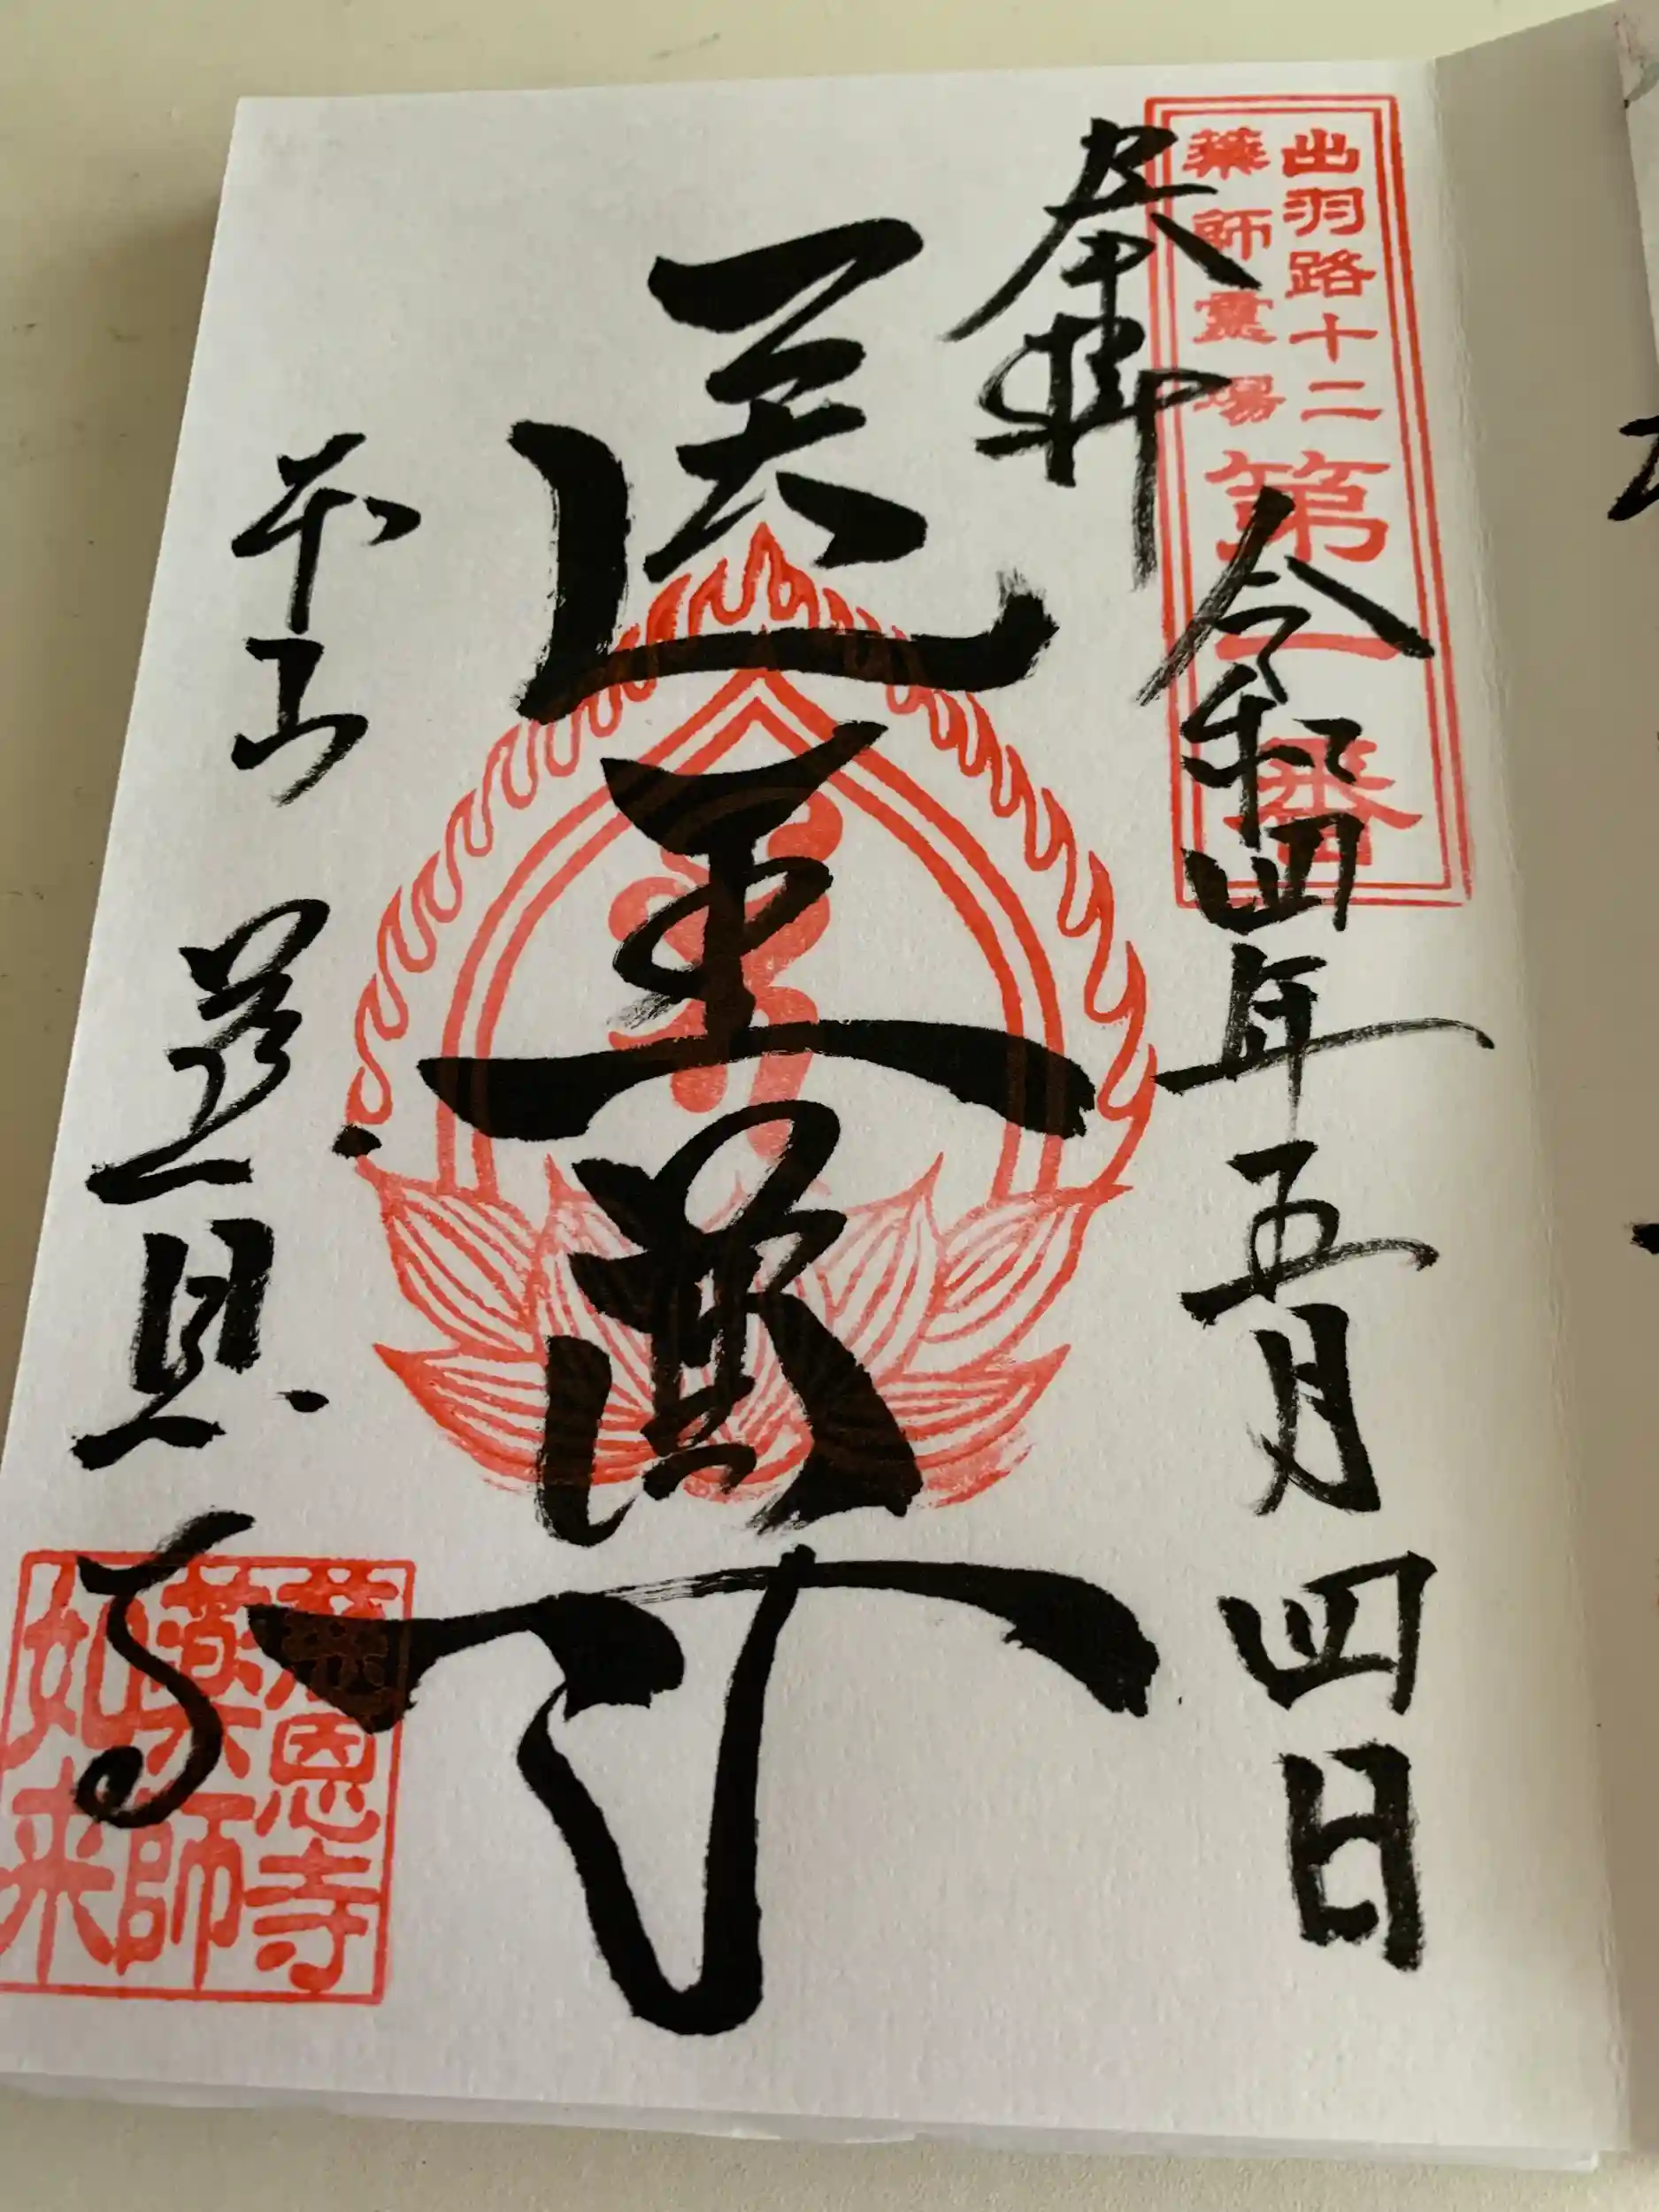 出羽路十二
藥師靈場
第一番
奉拝
令和四年五月四日
医王尊
本山
慈恩寺
慈恩寺
薬師
如来